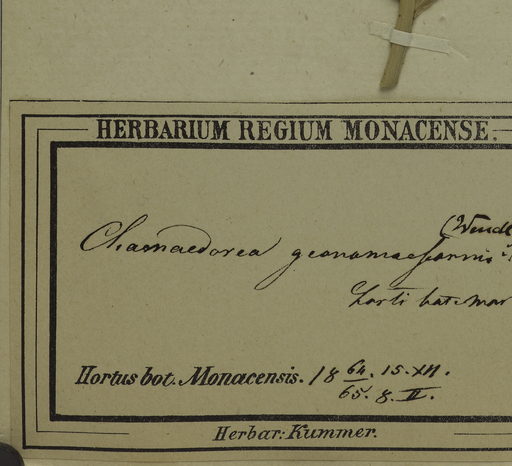 HERBARIUM REGIUM MONACENSE.
(Wendl
Chamaedorea geonomaeformis
horti bot. Mon
Hortus bot. Monacensis. 18 64. 15. XII.
65. 8. II.
Herbar: Kummer.